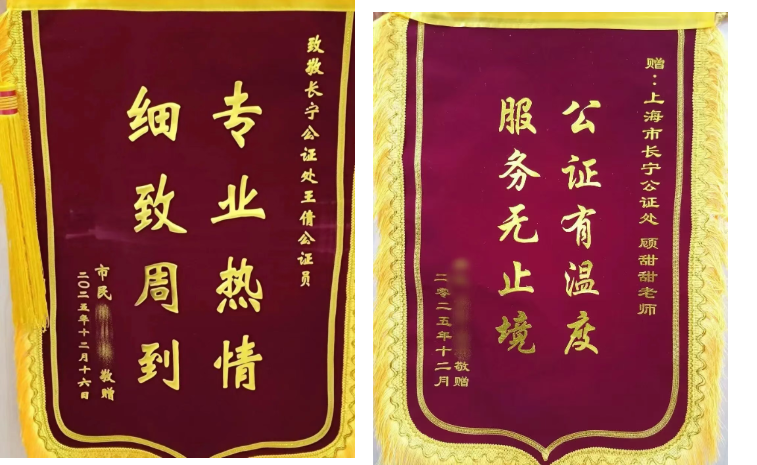 致敬长宁公证处王倩公证员
专业热情
细致周到
市民
敬赠
二〇二五年十二月十六日
赠：上海市长宁公证处 顾甜甜老师
公证有温度
服务无止境
敬赠
二零二五年十二月